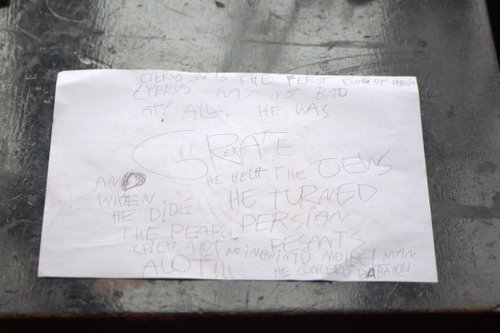 CYERUS WAS THE FERST KING OF PERSA
CYERUS WAS NOT BAD
AT ALL. HE WAS
GREATE
AND HE HELPT THE JEWS
WHEN HE TURNED
HE DIDE PERSIAN
THE PEAPOL PESANTS
CRIED ALOT NO MEN INTO NOBEL MAN
ALOT!!! HE CONCERD BABALON